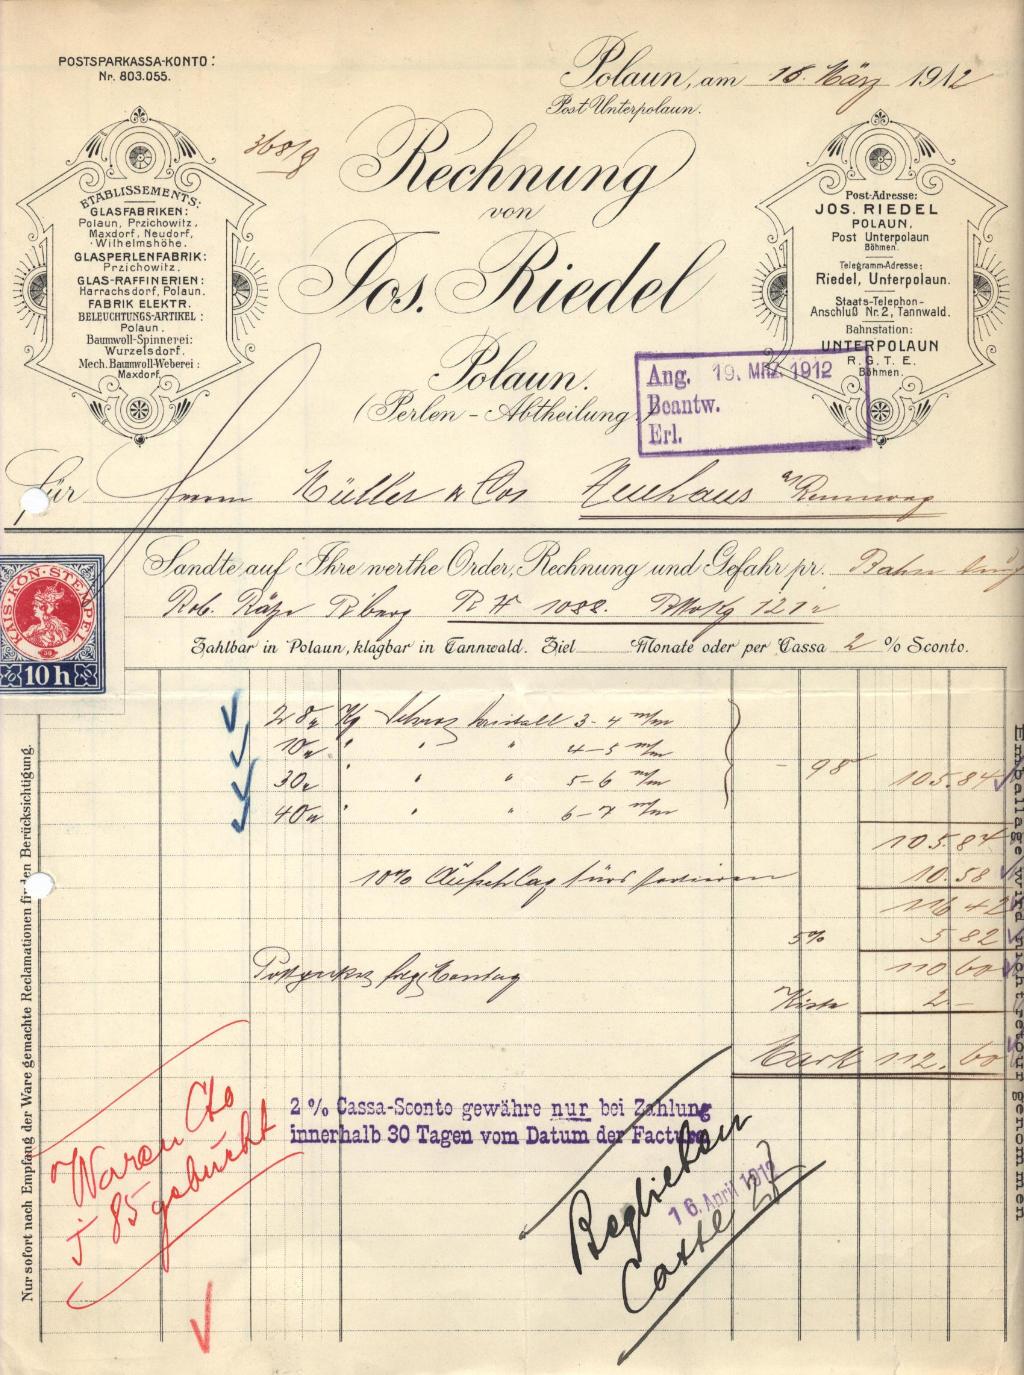 POSTSPARKASSA-KONTO:
Nr. 803.055.
Polaun, am 18. März 1912
Post Unterpolaun.
368/9
Rechnung
von
Jos. Riedel
Polaun.
(Perlen-Abtheilung.)
ETABLISSEMENTS:
GLASFABRIKEN:
Polaun, Przichowitz,
Maxdorf, Neudorf,
Wilhelmshöhe.
GLASPERLENFABRIK:
Przichowitz.
GLAS-RAFFINERIEN:
Harrachsdorf, Polaun.
FABRIK ELEKTR.
BELEUCHTUNGS-ARTIKEL:
Polaun.
Baumwoll-Spinnerei:
Wurzelsdorf.
Mech. Baumwoll-Weberei:
Maxdorf.
Post-Adresse:
JOS. RIEDEL
POLAUN.
Post Unterpolaun
Böhmen.
Telegramm-Adresse:
Riedel, Unterpolaun.
Staats-Telephon-
Anschluß Nr. 2, Tannwald.
Bahnstation:
UNTERPOLAUN
R. G. T. E.
Böhmen.
Ang. 19. MRZ. 1912
Beantw.
Erl.
Für Herrn Müller & Cos Neuhaus a/Rennweg
Sandte auf Ihre werthe Order, Rechnung und Gefahr pr. Bahn
Rob. R H 1088. 121
Zahlbar in Polaun, klagbar in Tannwald. Ziel Monate oder per Cassa 2 % Sconto.
KAIS. KÖN. STEMPEL
10 h
28 Kg 3-4 m/m
10 " " " 4-5 m/m
30 " " " 5-6 m/m - 98 105.84
40 " " " 6-7 m/m
105.84
10% Aufschlag fürs 10.58
116 42
5% 5 82
110 60
Kiste 2.-
Mark 112.60
2 % Cassa-Sconto gewähre nur bei Zahlung
innerhalb 30 Tagen vom Datum der Factura
Waren Cto
J 85 gebucht
Beglichen
16. April 1912
Casse 27
Nur sofort nach Empfang der Ware gemachte Reclamationen finden Berücksichtigung.
Emballage wird nicht retour genommen